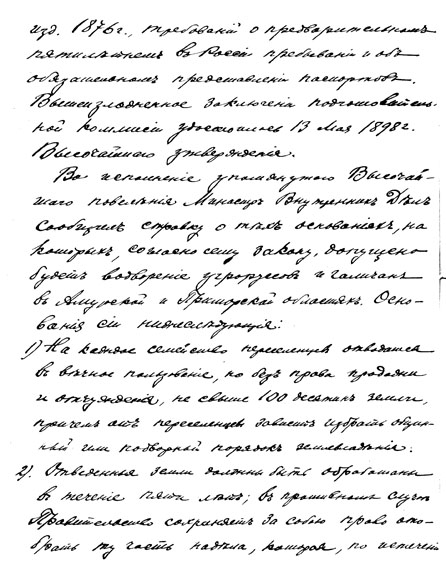 изд. 1876г., требованій о предварительномъ
пятилѣтнемъ въ Россіи пребываніи и объ
обязательномъ представленіи паспортовъ.
Вышеизложенное заключеніе подготовитель-
ной коммисіи удостоилось 13 Мая 1898г.
Высочайшаго утвержденія.
Во исполненіе упомянутаго Высочай-
шаго повелѣнія Министръ Внутреннихъ Дѣлъ
сообщилъ справку о тѣхъ основаніяхъ, на
которыхъ, согласно сему закону, допущено
будетъ водвореніе угроруссовъ и галичанъ
въ Амурской и Приморской областяхъ. Осно-
ванія сіи нижеслѣдующія:
1) На каждое семейство переселенцевъ отводятся
въ вѣчное пользованіе, но безъ права продажи
и отчужденія, не свыше 100 десятинъ земли,
причемъ отъ переселенцевъ зависитъ избрать общин-
ный или подворный порядокъ землевладѣнія.
2). Отведенныя земли должны быть обработаны
въ теченіе пяти лѣтъ; въ противномъ случаѣ
Правительство сохраняетъ за собою право ото-
брать ту часть надѣла, которая, по истеченіи